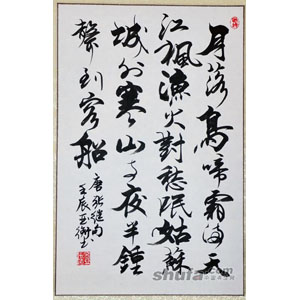 月落烏啼霜滿天
江楓漁火對愁眠姑蘇
城外寒山寺夜半鐘
聲到客船
唐張繼句
壬辰
shufa.com